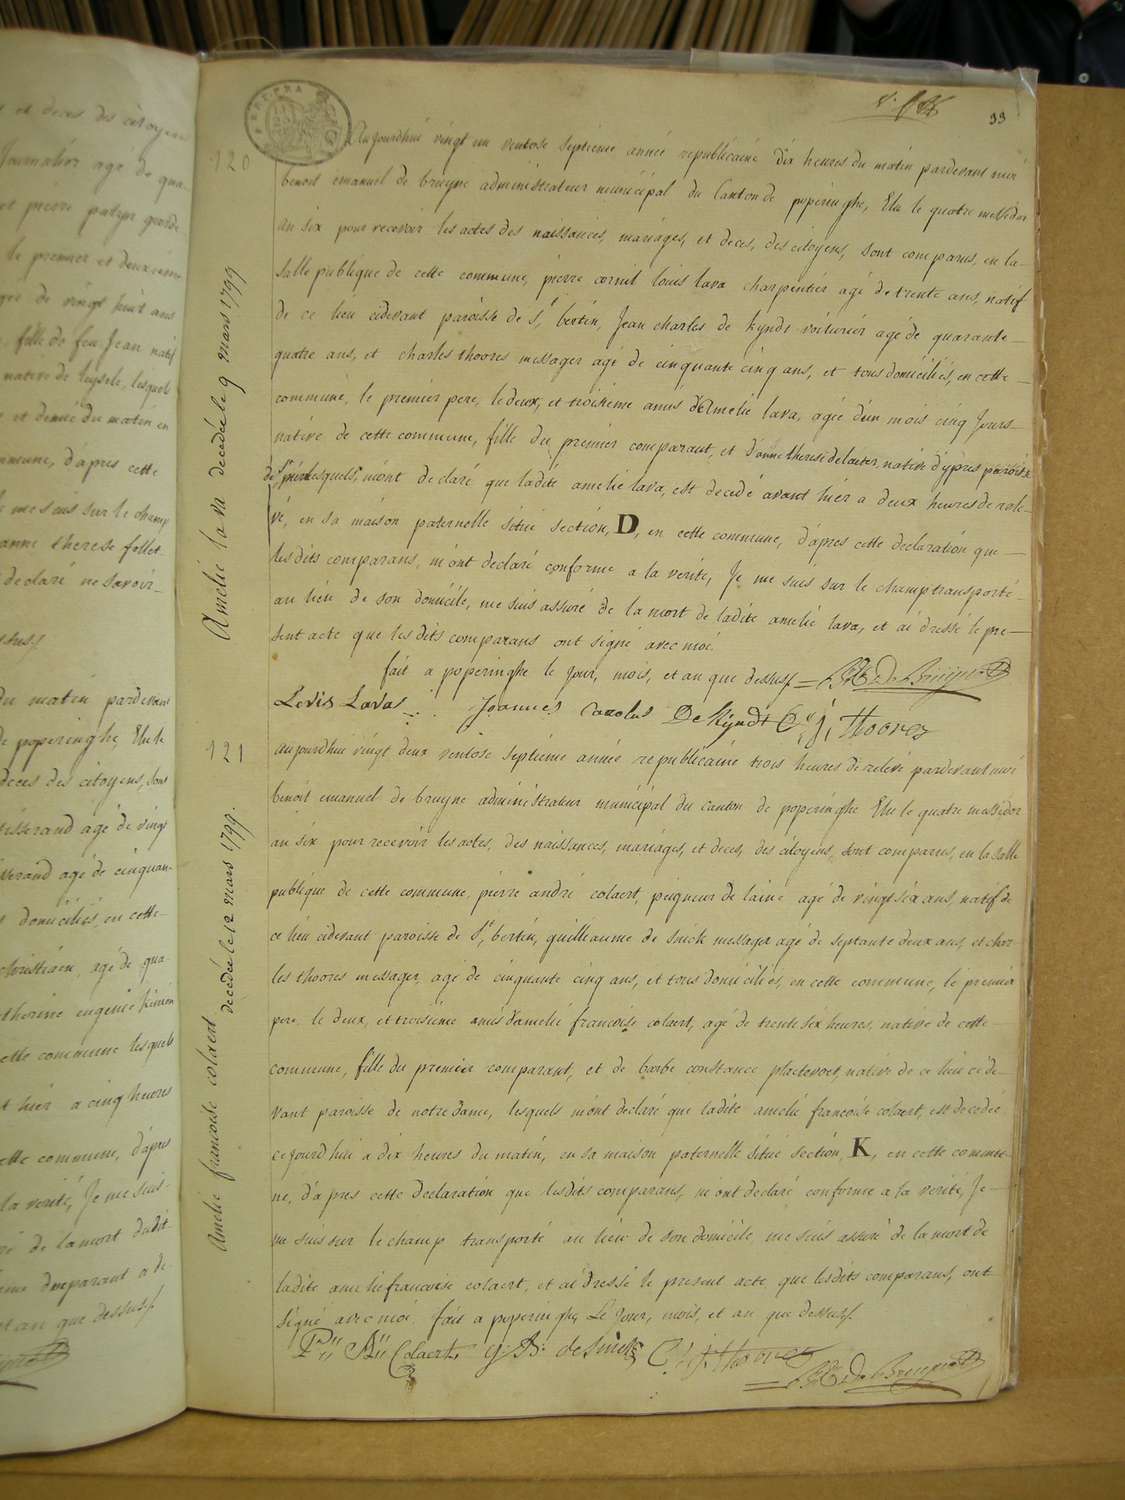 33
120
Amelie lava decedée le 9 mars 1799
Aujourdhui vingt un ventose septieme année republicaine dix heures du matin pardevant moi
benoit emanuel de bruyne administrateur municipal du Canton de poperinghe, Elu le quatre messidor
an six pour recevoir les actes des naissances, mariages, et deces, des citoyens, sont comparus, en la
salle publique de cette commune, pierre cornil louis lava charpentier agé de trente ans, natif
de ce lieu cidevant paroisse de St, bertin, Jean charles de Kyndt voiturier agé de quarante
quatre ans, et charles thoores messager agé de cinquante cinq ans, et tous domiciliés, en cette
commune, le premier pere, le deux, et troisieme amis d'Amelie lava, agée d'un mois cinq Jours
native de cette commune, fille du premier comparant, et d'anne therese delaeter, native d'ypres paroisse
de St pierre lesquels, m'ont declaré que ladite amelie lava, est decedé avant hier a deux heures de rele-
vé, en sa maison paternelle situé section, D, en cette commune, d'apres cette declaration que
lesdits comparans, m'ont declaré conforme a la verité, Je me suis sur le champ transporté
au lieu de son domicile, me suis assuré de la mort de ladite amelie lava, et ai dressé le pre-
sent acte que lesdits comparans ont signé avec moi.
fait a poperinghe le Jour, mois, et an que dessus/. BE De Bruyne
Lovis Lavas Joannes Carolus De Kyndt C: j, Thoores
121
Amelie francoise colaert decédée le 12 mars 1799.
aujourdhui vingt deux ventose septieme année republicaine trois heures de relevé pardevant moi
benoit emanuel de bruyne administrateur municipal du canton de poperinghe Elu le quatre messidor
an six pour recevoir les actes, des naissances, mariages, et deces, des citoyens, sont comparus, en la salle
publique de cette commune, pierre andré colaert, peigneur de laine agé de vingt six ans, natif de
ce lieu cidevant paroisse de St, bertin, guillieaume de snick messager agé de septante deux ans, et char-
les thoores messager, agé de cinquante cinq ans, et tous domiciliés, en cette commune, le premier
pere, le deux, et troisieme amis d'amelie francoise colaert, agé de trente six heures, native de cette
commune, fille du premier comparant, et de barbe constance plaetevoet, native de ce lieu cide-
vant paroisse de notre dame, lesquels m'ont declaré que ladite amelie francoise colaert, est decedée
cejourd'hui a dix heures du matin, en sa maison paternelle situé section, K, en cette commu-
ne, d'apres cette declaration que lesdits comparans, m'ont declaré conforme a la verité, Je
me suis sur le champ transporté au lieu de son domicile me suis assuré de la mort de
ladite amelie francoise colaert, et ai dressé le present acte que lesdits comparans, ont
signé avec moi. fait a poperinghe, Le Jour, mois, et an que dessus/.
P: A: Colaert g: B: de Snick C: j: Thoores
BE De Bruyne